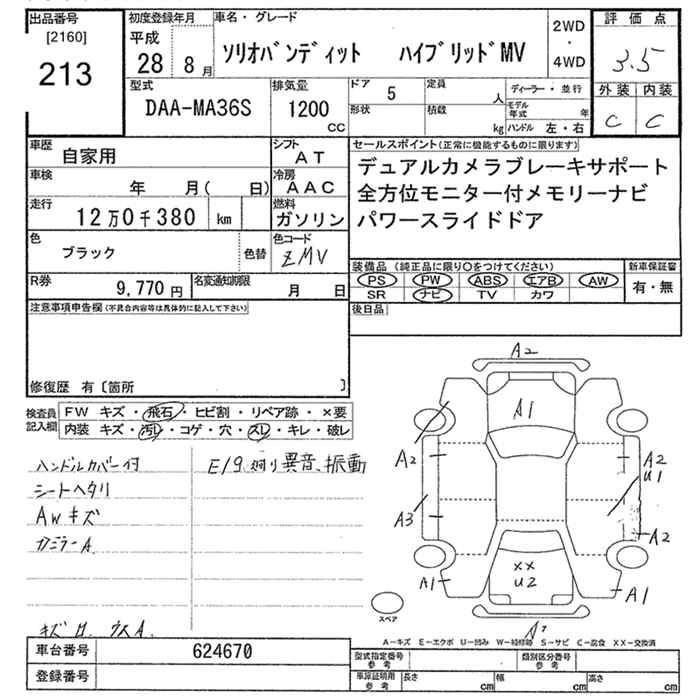 出品番号
[2160]
213
初度登録年月
平成
28 8月
車名・グレード
ソリオバンディット ハイブリッドMV
2WD
・
4WD
評価点
3.5
外装 内装
C C
型式
DAA-MA36S
排気量
1200
cc
ドア 5
定員 人
形状
積載 kg
ディーラー・並行
モデル年式 年
ハンドル 左・右
車歴
自家用
シフト
AT
車検
年 月( 日)
冷房
AAC
走行
12万0千380 km
燃料
ガソリン
色
ブラック
色替
色コード
ZMV
R券
9,770円
名変通知期限
月 日
セールスポイント(正常に機能するものに限ります)
デュアルカメラブレーキサポート
全方位モニター付メモリーナビ
パワースライドドア
装備品(純正品に限り○をつけてください)
PS PW ABS エアB AW
SR ナビ TV カワ
新車保証書
有・無
後日品
注意事項申告欄(不具合内容等は具体的に記入して下さい)
修復歴 有〔箇所 〕
検査員記入欄
FW キズ・飛石・ヒビ割・リペア跡・×要
内装 キズ・汚レ・コゲ・穴・スレ・キレ・破レ
ハンドルカバー付
シートヘタリ
AWキズ
E/g廻り異音、振動
A2
A1
A2
A2
U1
A3
A2
A1
××
U2
A1
スペア
A-キズ E-エクボ U-凹み W-補修跡 S-サビ C-腐食 XX-交換済
車台番号
624670
登録番号
型式指定番号
参考
類別区分番号
参考
車庫証明用
参考
長さ cm
幅 cm
高さ cm